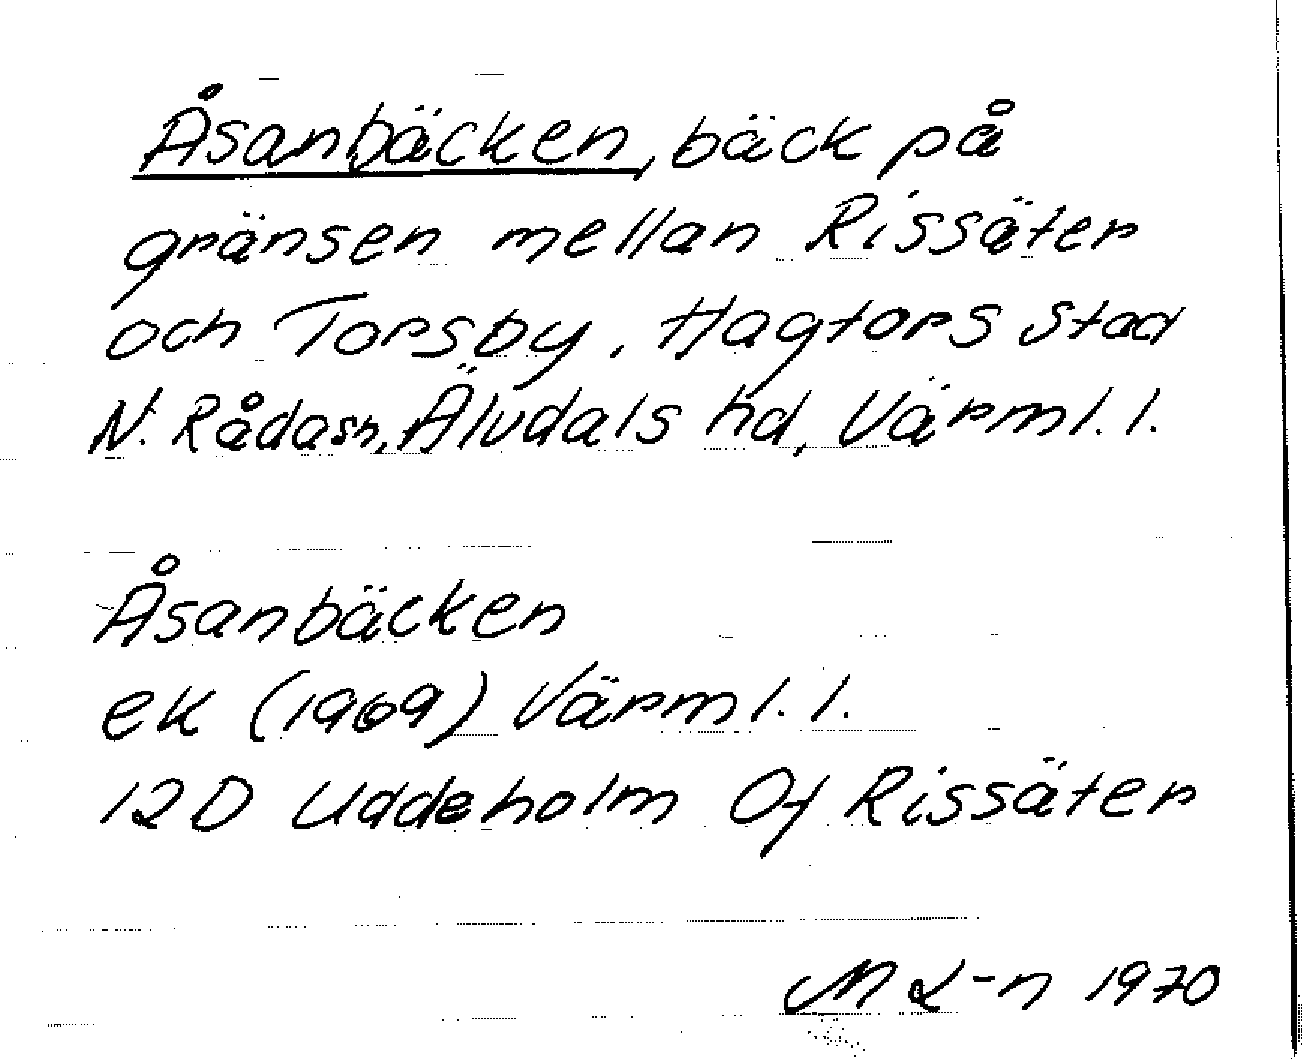 Åsanbäcken, bäck på
gränsen mellan Rissäter
och Torsby, Hagfors stad
N. Rådasn, Älvdals hd, Värml. l.
Åsanbäcken
ek (1969) Värml. l.
12D Uddeholm Of Rissäter
M L-n 1970